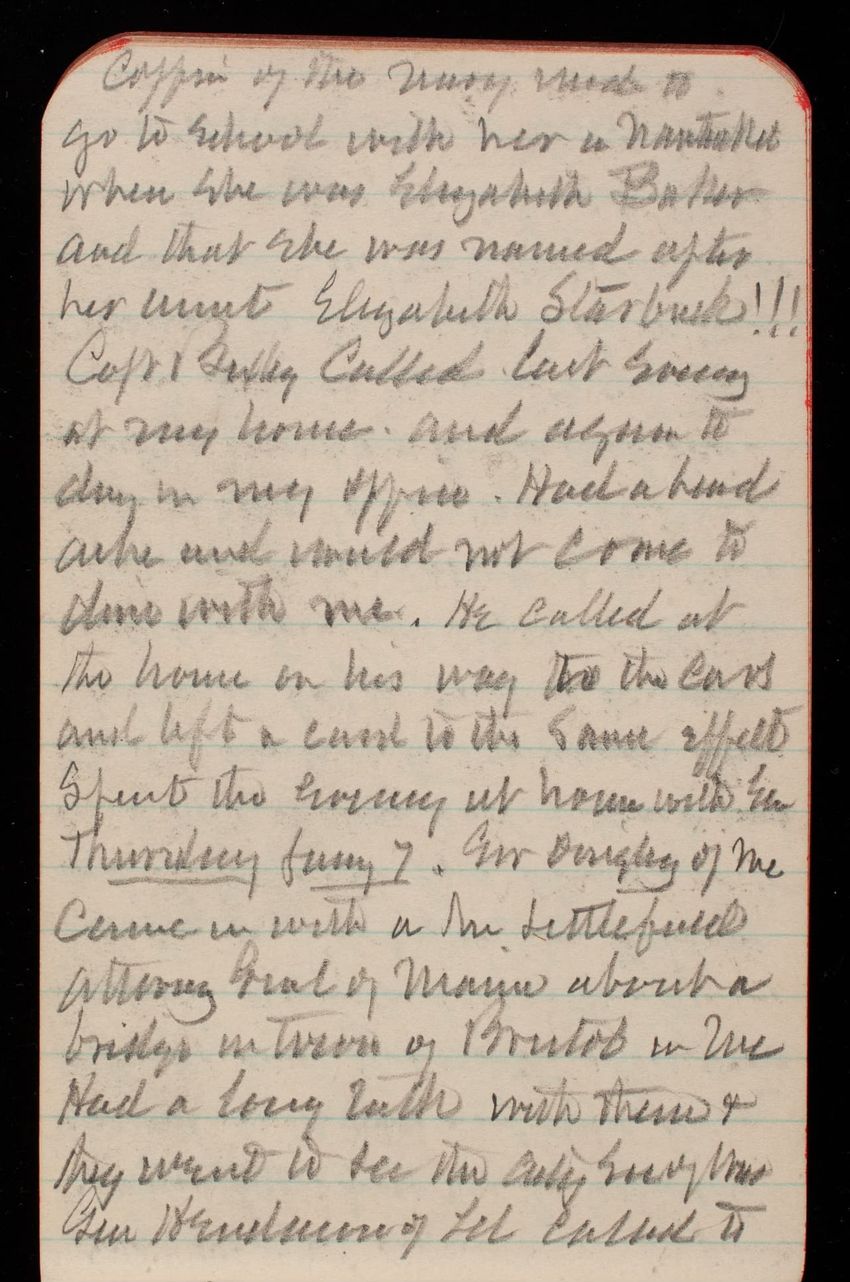 Coffin of the Navy used to
go to School with her in Nantucket
when she was Elizabeth Baker
and that she was named after
her aunt Elizabeth Starbuck!!!
Capt Called last Evening
at my home. and again to
day in my office. Had a head
ache and would not come to
dine with me. He called at
the house on his way to the cars
and left a card to the same effect
Spent the evening at home with
Thursday Jany 7. Gov of Me
Came in with a Mr Littlefield
Attorney Genl of Maine about a
bridge in Town of Bristol in Me
Had a long talk with them &
they went to see the
Gen Henderson of Ill called to